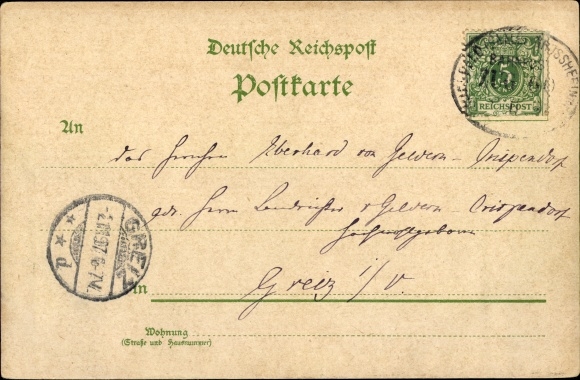 Deutsche Reichspost
Postkarte
5
REICHSPOST
An
das Herrchen Eberhard von Geldern-Crispendorf
adr. Herrn Landrichter v Geldern-Crispendorf
Hochwohlgeboren
GREIZ
in Greiz i/V.
Wohnung
(Straße und Hausnummer)